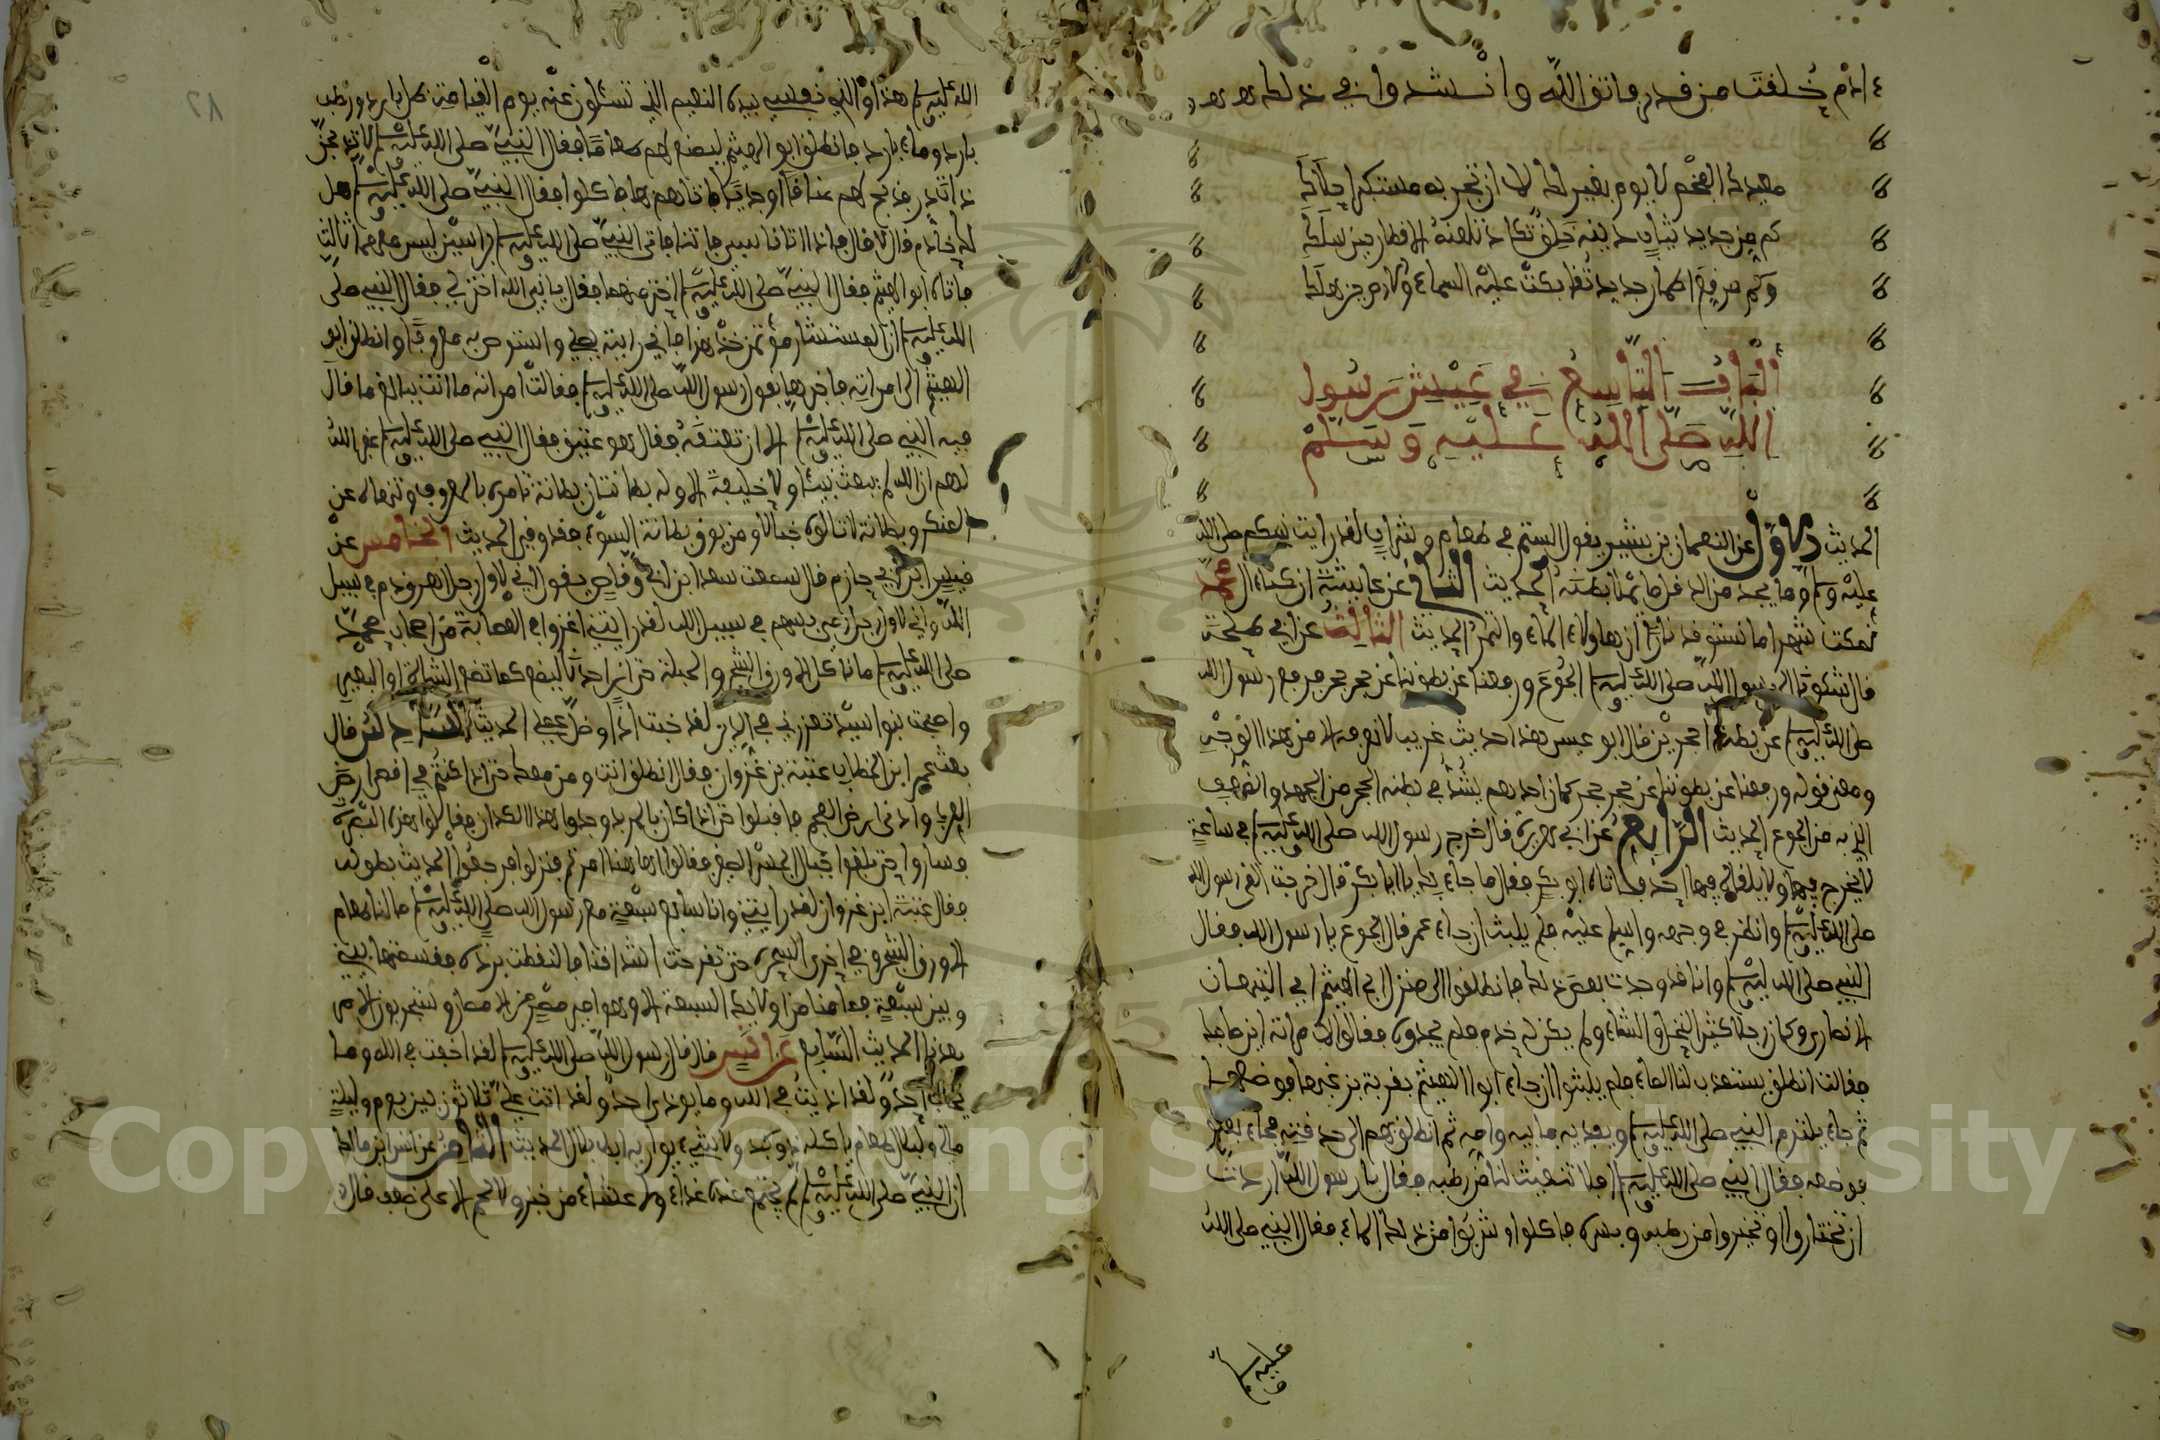 ءادم خلقت من قدر فاتق الله وانشدوا في ذلك
مهدك الفخم لا يوم يغير لك الا ان تجر به مستكبرا
كم من جديد ثياب دينه خلق تكاد تلعنه الاقطار حين سلك
وكم مرقع اطمار جديد تقا بكت عليه السماء والارض حين هلك
الباب التاسع في عيش رسول
الله صلى الله عليه وسلم
الحديث الاول عن النعمان بن بشير يقول الستم في طعام وشراب لقد رايت نبيكم صلى الله
عليه وسلم وما يجد من الدقل ما يملأ بطنه الحديث الثاني عن عايشة ان كنا ءال محمد
نمكث شهرا ما نستوقد نارا ان هو الا الماء والتمر الحديث الثالث عن ابي طلحة
قال شكونا الى رسول الله صلى الله عليه وسلم الجوع ورفعنا عن بطوننا عن حجر حجر فرفع رسول الله
صلى الله عليه وسلم عن بطنه حجرين قال ابو عيسى هذا حديث غريب لا نعرفه الا من هذا الوجه
ومعنى قوله ورفعنا عن بطوننا عن حجر حجر كان احدهم يشد في بطنه الحجر من الجهد والضعف
الذي به من الجوع الحديث الرابع عن ابي هريرة قال خرج رسول الله صلى الله عليه وسلم في ساعة
لا يخرج فيها ولا يلقاه فيها احد فاتاه ابو بكر فقال ما جاء بك يا ابا بكر قال خرجت القى رسول الله
صلى الله عليه وسلم وانظر في وجهه واسلم عليه فلم يلبث ان جاء عمر قال الجوع يا رسول الله فقال
النبي صلى الله عليه وسلم وانا قد وجدت بعض ذلك فانطلقوا الى منزل ابي الهيثم ابي التيهان
الانصاري وكان رجلا كثير النخل والشاء ولم يكن له خدم فلم يجدوه فقالوا لامراته اين صاحبك
فقالت انطلق يستعذب لنا الماء فلم يلبثوا ان جاء ابو الهيثم بقربة يزعبها فوضعها
ثم جاء يلتزم النبي صلى الله عليه وسلم ويفديه بابيه وامه ثم انطلق بهم الى حديقته فجاء بقنو
فوضعه فقال النبي صلى الله عليه وسلم افلا تنقيت لنا من رطبه فقال يا رسول الله اردت
ان تختاروا او تخيروا من رطبه وبسره فاكلوا وشربوا من ذلك الماء فقال النبي صلى الله
عليه وسلم
الله عليه وسلم هذا والذي نفسي بيده النعيم الذي تسئلون عنه يوم القيامة ظل بارد ورطب
بارد وماء بارد فانطلق ابو الهيثم ليصنع لهم طعاما فقال النبي صلى الله عليه وسلم لا تذبحن
ذات در فذبح لهم عناقا او جديا فاتاهم بها فاكلوا فقال النبي صلى الله عليه وسلم هل
لك خادم قال لا قال فاذا اتانا سبي فاتنا فاتي النبي صلى الله عليه وسلم براسين ليس معهما ثالث
فاتاه ابو الهيثم فقال النبي صلى الله عليه وسلم اختر منهما فقال يا نبي الله اختر لي فقال النبي صلى
الله عليه وسلم ان المستشار مؤتمن خذ هذا فاني رايته يصلي واستوص به معروفا وانطلق ابو
الهيثم الى امراته فاخبرها بقول رسول الله صلى الله عليه وسلم فقالت امراته ما انت ببالغ ما قال
فيه النبي صلى الله عليه وسلم الا ان تعتقه فقال هو عتيق فقال النبي صلى الله عليه وسلم غفر الله
لهم ان الله لم يبعث نبيا ولا خليفة الا وله بطانتان بطانة تامره بالمعروف وتنهاه عن
المنكر وبطانة لا تالوه خبالا ومن يوق بطانة السوء فقد وقي الحديث الخامس عن
قيس بن ابي حازم قال سمعت سعد ابن ابي وقاص يقول اني لاول رجل اهرق دم في سبيل
الله واني لاول رجل رمى بسهم في سبيل الله لقد رايتني اغزو في العصابة من اصحاب محمد
صلى الله عليه وسلم ما ناكل الا ورق الشجر والحبلة حتى ان احدنا ليضع كما تضع الشاة او البعير
واصبحت بنوا اسد تعزرني في الدين لقد خبت اذا وضل عملي الحديث السادس قال
بعث عمر ابن الخطاب عتبة بن غزوان فقال انطلق انت ومن معك حتى اذا كنتم في اقصى ارض
العرب وادنى ارض العجم فاقبلوا حتى اذا كان بالمربد وجدوا هذا الكذان فقالوا هذه البصرة
وساروا حتى بلغوا حيال الجسر الصغير فقالوا ههنا امرتم فنزلوا فذكروا الحديث بطوله
فقال عتبة ابن غزوان لقد رايتني وانا سابع سبعة مع رسول الله صلى الله عليه وسلم ما لنا طعام
الا ورق الشجر حتى تقرحت اشداقنا فالتقطت بردة فقسمتها بيني
وبين سبعة فما منا من اولئك السبعة الا وهو امير مصر من الامصار وستجربون الامرا
بعدنا الحديث السابع عن انس قال قال رسول الله صلى الله عليه وسلم لقد اخفت في الله وما
يخاف احد ولقد اذيت في الله وما يوذى احد ولقد اتت علي ثلاثون بين يوم وليلة
مالي ولبلال طعام ياكله ذو كبد الا شيء يواريه ابط بلال الحديث الثامن عن انس ابن مالك
ان النبي صلى الله عليه وسلم لم يجتمع عنده غداء ولا عشاء من خبز ولا لحم الا على ضفف قال